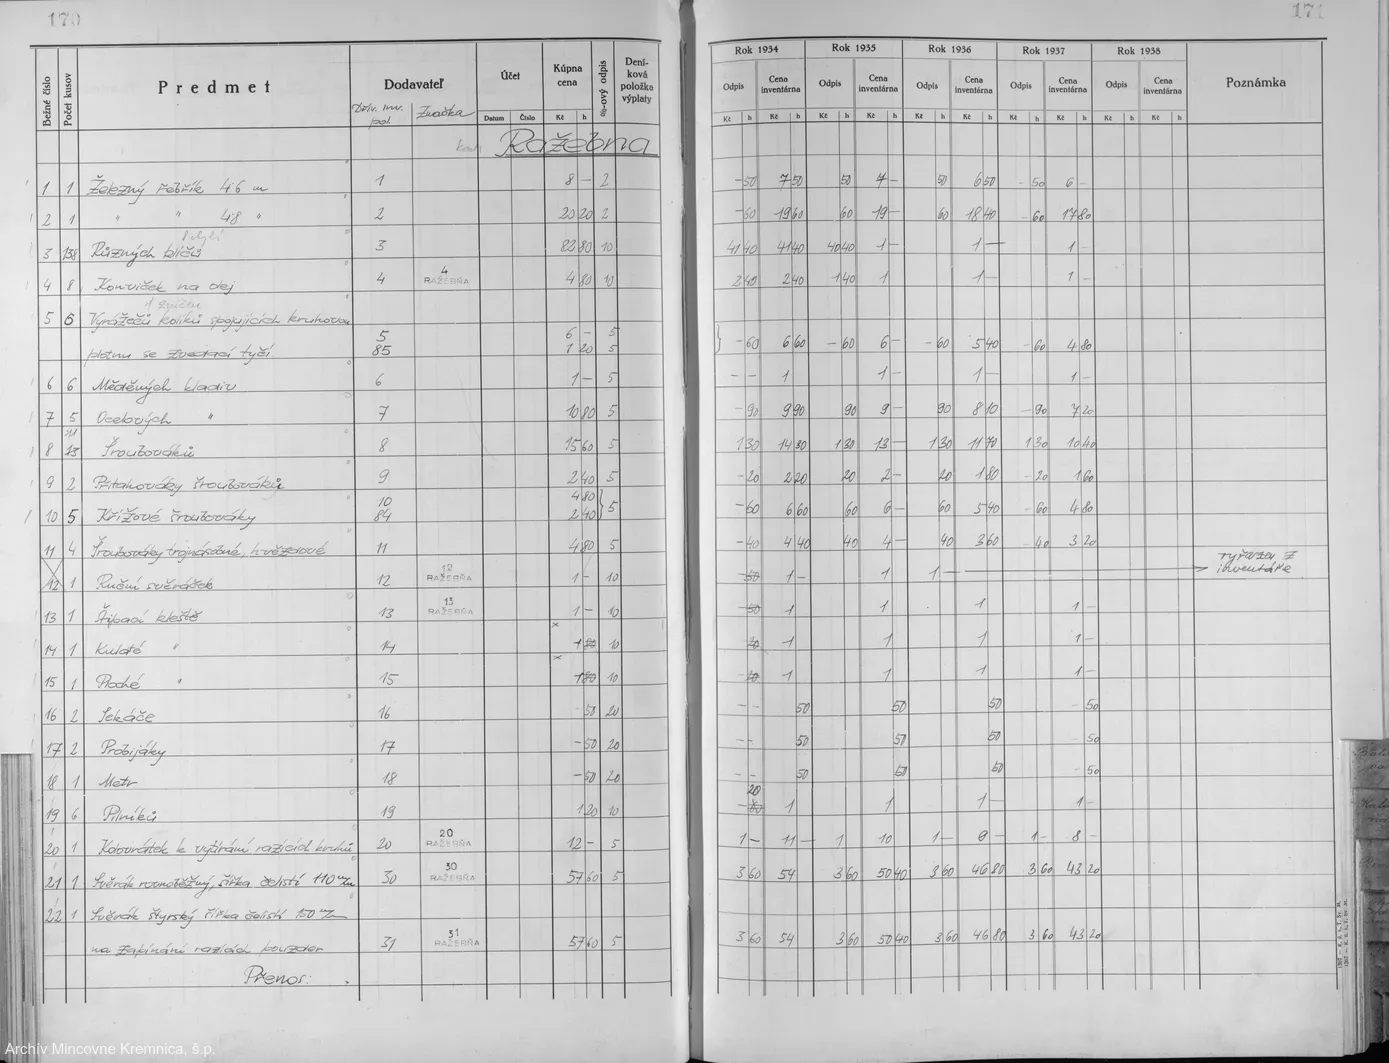 170
171
Bežné číslo Počet kusov Predmet Dodavateľ Účet Kúpna cena %-ový odpis Deníková položka výplaty
Datum Číslo Kč h
Značka
Rok 1934 Rok 1935 Rok 1936 Rok 1937 Rok 1938 Poznámka
Odpis Cena inventárna Odpis Cena inventárna Odpis Cena inventárna Odpis Cena inventárna Odpis Cena inventárna
Kč h Kč h Kč h Kč h Kč h Kč h Kč h Kč h Kč h Kč h
Ražebna
1 1 Železný řebřík 4·6 m 1 8 – 2 – 50 7 50 50 7 – 50 6 50 – 50 6 –
2 1 " " 4·8 " 2 20 20 2 – 60 19 60 60 19 – 60 18 40 – 60 17 80
3 138 Různých klíčů 3 82 80 10 41 40 41 40 40 40 1 – 1 – 1 –
4 8 Konviček na olej 4 4 RAŽEBŇA 4 80 10 2 40 2 40 1 40 1 1 – 1 –
5 6 Vyrážečů kolíků spojujících kruhovou
5 6 – 5
plotnu se zvedací tyčí. 85 1 20 5 – 60 6 60 – 60 6 – – 60 5 40 – 60 4 80
6 6 Měděných kladiv 6 1 – 5 – – 1 1 – 1 – 1 –
7 5 Ocelových " 7 10 80 5 – 90 9 90 90 9 – 90 8 10 – 90 7 20
8 13 Šroubováků 8 15 60 5 1 30 14 30 1 30 13 – 1 30 11 70 1 30 10 40
9 2 Přitahováky šroubováků 9 2 40 5 – 20 2 20 20 2 – 20 1 80 – 20 1 60
10 4 80
10 5 Křížové šroubováky 84 2 40 5 – 60 6 60 60 6 – 60 5 40 – 60 4 80
11 4 Šroubováky trojnásobné, hvězdové 11 4 80 5 – 40 4 40 40 4 – 40 3 60 – 40 3 20
12 1 Ruční svěráček 12 12 RAŽEBŇA 1 – 10 – 50 1 – 1 1 – inventáře
13 1 Štípací kleště 13 13 RAŽEBŇA 1 – 10 – 50 1 1 1 1 –
14 1 Kulaté " 14 1 80 10 1 1 1 1 –
15 1 Ploché " 15 1 80 10 1 1 1 1 –
16 2 Sekáče 16 – 50 20 – – 50 50 50 – 50
17 2 Probijáky 17 – 50 20 – – 50 50 50 – 50
18 1 Metr 18 – 50 20 – – 50 50 50 – 50
19 6 Pilníků 19 1 20 10 20 1 1 1 – 1 –
20 1 Kolovrátek k vyžírání razících kruhů 20 20 RAŽEBŇA 12 – 5 1 – 11 – 1 10 1 – 9 – 1 – 8 –
21 1 Svěrák rovnoběžný, šířka čelistí 110 m/m 30 30 RAŽEBŇA 57 60 5 3 60 54 3 60 50 40 3 60 46 80 3 60 43 20
22 1 Svěrák štyrský šířka čelistí 150 m/m
na zapínání razících pouzder 31 31 RAŽEBŇA 57 60 5 3 60 54 3 60 50 40 3 60 46 80 3 60 43 20
Přenos:
Archív Mincovne Kremnica, š.p.